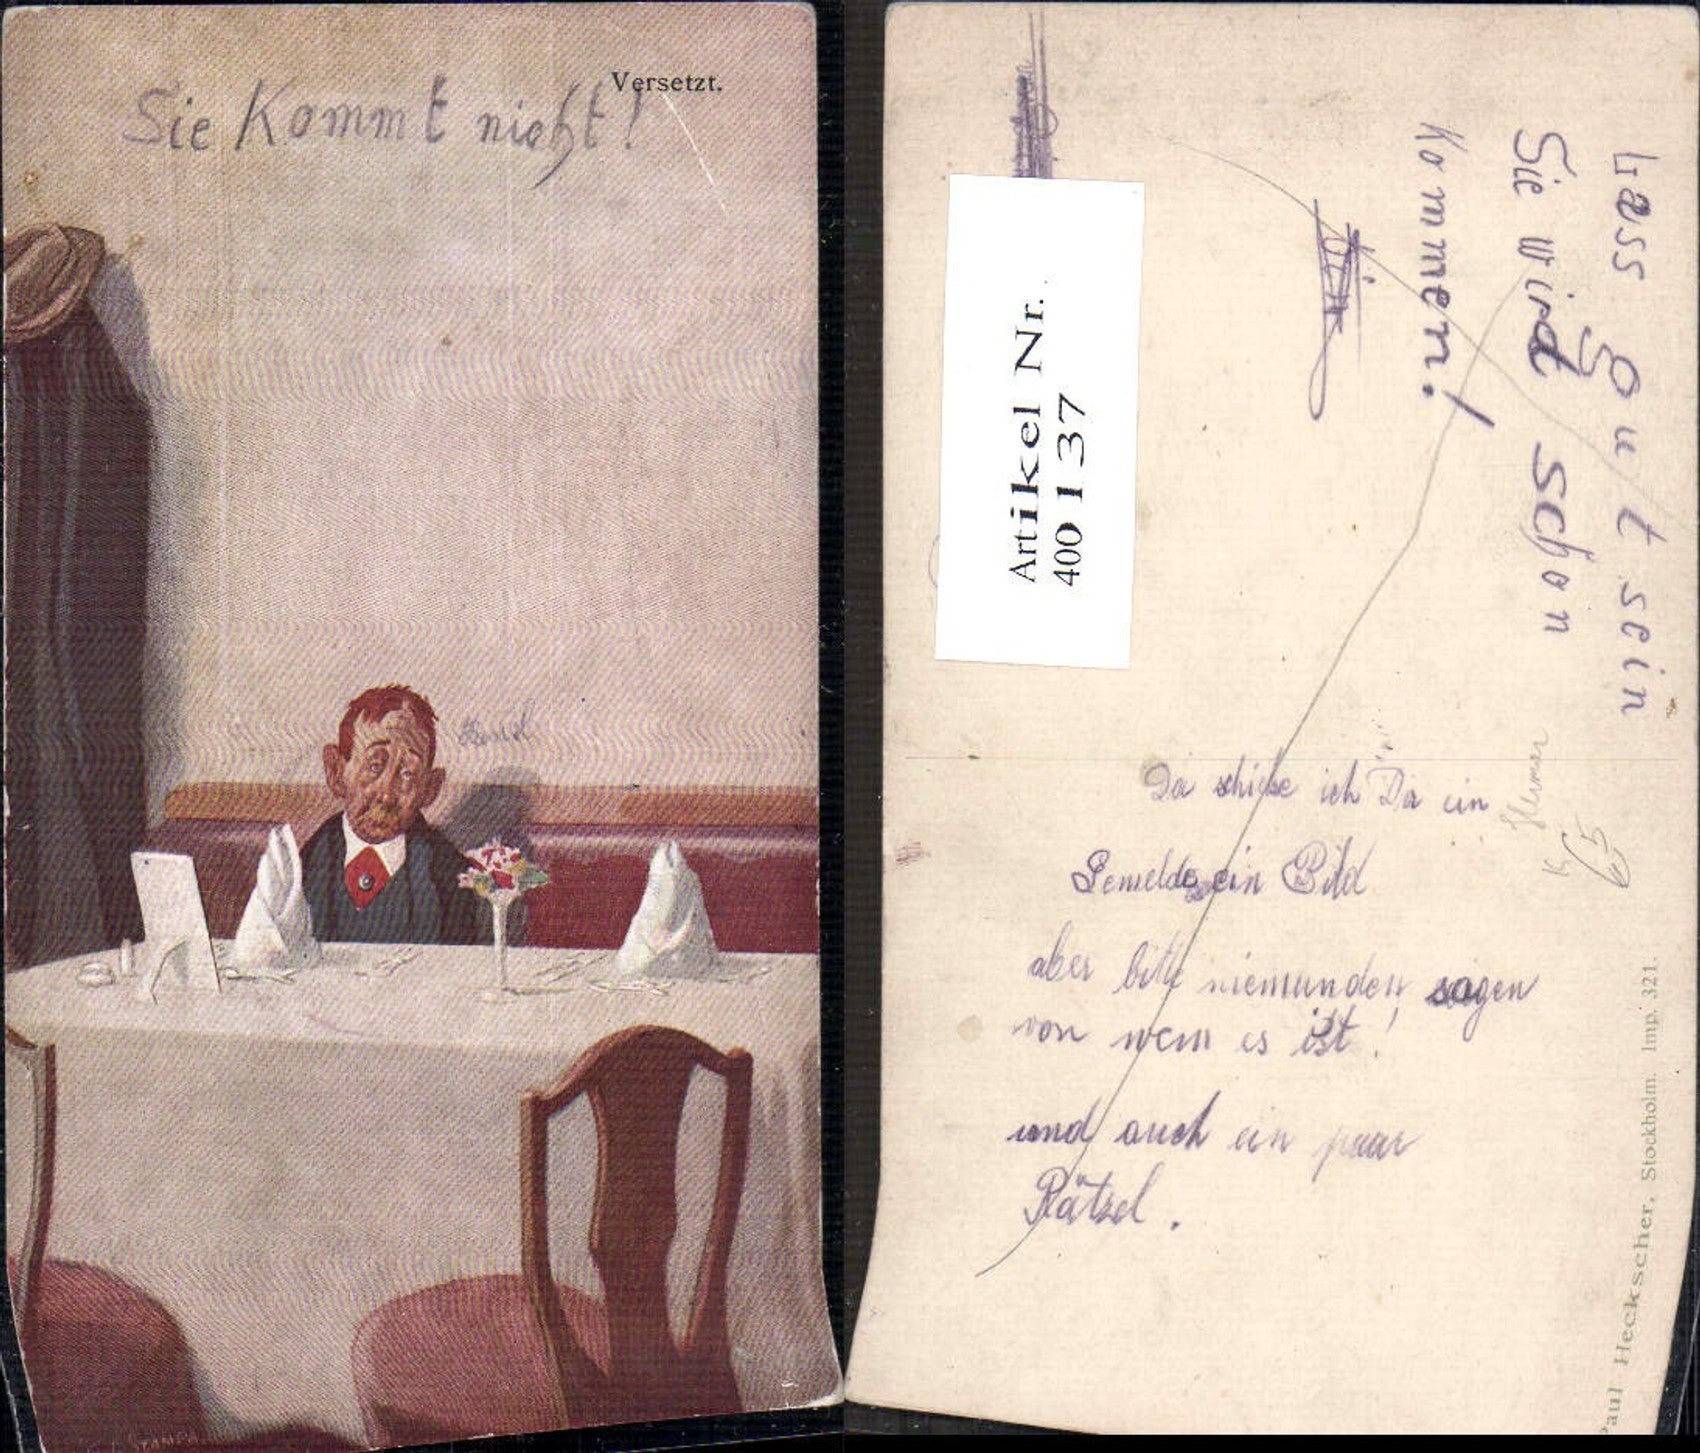 Versetzt.
Sie Kommt nicht!
Hansl
STAMPA
Artikel Nr.
400 137
Lass gut sein
Sie wird schon
Kommen!
Da schicke ich Dir ein
Gemelde ein Bild
aber bitte niemanden sagen
von wem es ist!
und auch ein paar
Rätzel.
65
Paul Heckscher, Stockholm. Imp. 321.